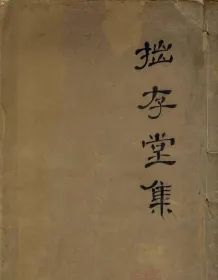 拙存堂集